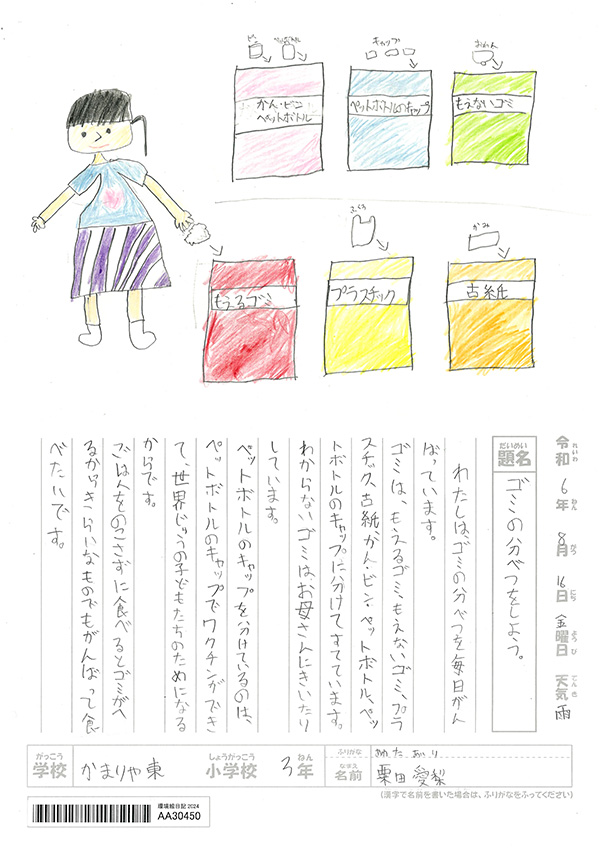 キャップ
かん・ビン
ペットボトル
ペットボトルのキャップ
もえないゴミ
ふくろ
かみ
もえるゴミ
プラスチック
古紙
令和 6年 8月 16日 金曜日 天気 雨
れいわ ねん がつ にち ようび てんき
だいめい
題名
ゴミの分べつをしよう。
わたしは、ゴミの分べつを毎日がん
ばっています。
ゴミは、もえるゴミ、もえないゴミ、プラ
スチック、古紙、かん・ビン・ペットボトル、ペッ
トボトルのキャップに分けてすてています。
わからないゴミは、お母さんにきいたり
しています。
ペットボトルのキャップを分けているのは、
ペットボトルのキャップでワクチンができ
て、世界じゅうの子どもたちのためになる
からです。
ごはんをのこさずに食べるとゴミがへ
るからきらいなものでもがんばって食
べたいです。
がっこう しょうがっこう ねん
学校 かまりや東 小学校 3年
ふりがな
なまえ
名前 栗田 愛梨
(漢字で名前を書いた場合は、ふりがなをふってください)
環境絵日記 2024
AA30450